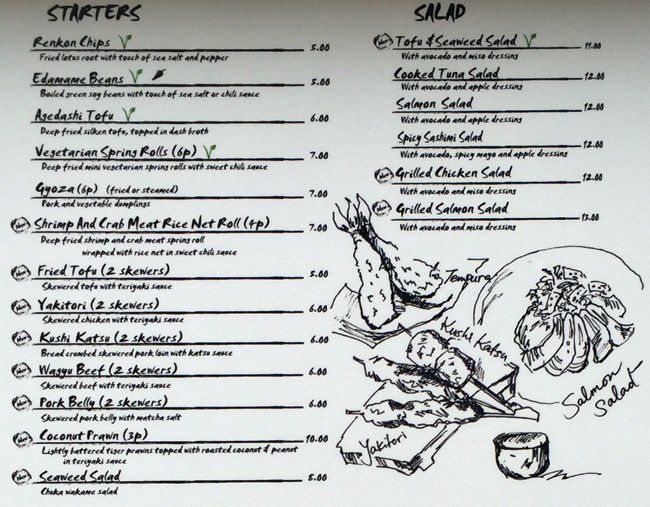 STARTERS
Renkon Chips 5.00
Fried lotus root with touch of sea salt and pepper
Edamame Beans 5.00
Boiled green soy beans with touch of sea salt or chili sauce
Agedashi Tofu 6.00
Deep fried silken tofu, topped in dash broth
Vegetarian Spring Rolls (6p) 7.00
Deep fried mini vegetarian spring rolls with sweet chili sauce
Gyoza (6p) (fried or steamed) 7.00
Pork and vegetable dumplings
New Shrimp And Crab Meat Rice Net Roll (4p) 7.00
Deep fried shrimp and crab meat spring roll
wrapped with rice net in sweet chili sauce
New Fried Tofu (2 skewers) 5.00
Skewered tofu with teriyaki sauce
New Yakitori (2 skewers) 6.00
Skewered chicken with teriyaki sauce
New Kushi Katsu (2 skewers) 6.00
Bread crumbed skewered pork loin with katsu sauce
New Wagyu Beef (2 skewers) 6.00
Skewered beef with teriyaki sauce
New Pork Belly (2 skewers) 6.00
Skewered pork belly with matcha salt
New Coconut Prawn (3p) 10.00
Lightly battered tiger prawns topped with roasted coconut & peanut
in teriyaki sauce
New Seaweed Salad 8.00
Chuka wakame salad
SALAD
New Tofu & Seaweed Salad 11.00
With avocado and miso dressing
Cooked Tuna Salad 12.00
With avocado and apple dressing
Salmon Salad 12.00
With avocado and apple dressing
Spicy Sashimi Salad 12.00
With avocado, spicy mayo and apple dressing
New Grilled Chicken Salad 12.00
With avocado and miso dressing
New Grilled Salmon Salad 13.00
With avocado and miso dressing
Tempura
Kushi Katsu
Salmon
Salad
Yakitori